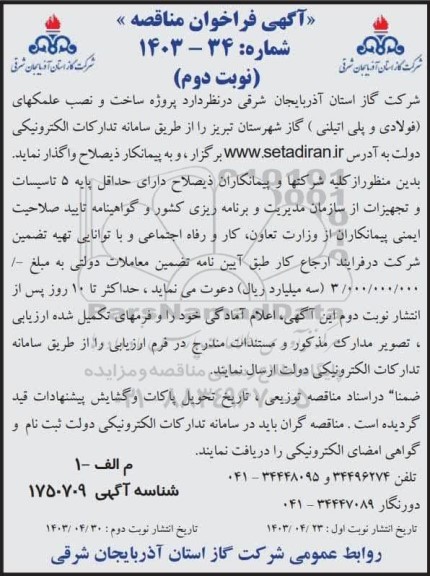 «آگهی فراخوان مناقصه»
شماره: ۳۴ – ۱۴۰۳
(نوبت دوم)
شرکت گاز استان آذربایجان شرقی
شرکت گاز استان آذربایجان شرقی
شرکت گاز استان آذربایجان شرقی درنظردارد پروژه ساخت و نصب علمکهای
(فولادی و پلی اتیلنی ) گاز شهرستان تبریز را از طریق سامانه تدارکات الکترونیکی
دولت به آدرس www.setadiran.ir برگزار ، و به پیمانکار ذیصلاح واگذار نماید.
بدین منظورازکلیه شرکتها و پیمانکاران ذیصلاح دارای حداقل پایه ۵ تاسیسات
و تجهیزات از سازمان مدیریت و برنامه ریزی کشور و گواهینامه تایید صلاحیت
ایمنی پیمانکاران از وزارت تعاون، کار و رفاه اجتماعی و با توانایی تهیه تضمین
شرکت درفرایند ارجاع کار طبق آیین نامه تضمین معاملات دولتی به مبلغ -/
۳/۰۰۰/۰۰۰/۰۰۰ (سه میلیارد ریال) دعوت می نماید ، حداکثر تا ۱۰ روز پس از
انتشار نوبت دوم این آگهی، اعلام آمادگی خود را و فرمهای تکمیل شده ارزیابی
، تصویر مدارک مذکور و مستندات مندرج در فرم ارزیابی را از طریق سامانه
تدارکات الکترونیکی دولت ارسال نمایند.
ضمنا" دراسناد مناقصه توزیعی ، تاریخ تحویل پاکات وگشایش پیشنهادات قید
گردیده است . مناقصه گران باید در سامانه تدارکات الکترونیکی دولت ثبت نام و
گواهی امضای الکترونیکی را دریافت نمایند.
م الف -۱
تلفن ۳۴۴۹۶۲۷۴ و ۳۴۴۴۸۰۹۵ – ۰۴۱
شناسه آگهی ۱۷۵۰۷۰۹
دورنگار ۳۴۴۴۷۰۸۹ – ۰۴۱
تاریخ انتشار نوبت اول : ۲۳ /۰۴ /۱۴۰۳
تاریخ انتشار نوبت دوم : ۳۰ /۰۴ /۱۴۰۳
روابط عمومی شرکت گاز استان آذربایجان شرقی
ParsNamadData
۰۲۱-۸۸۳۴۹۶۷۰-۵